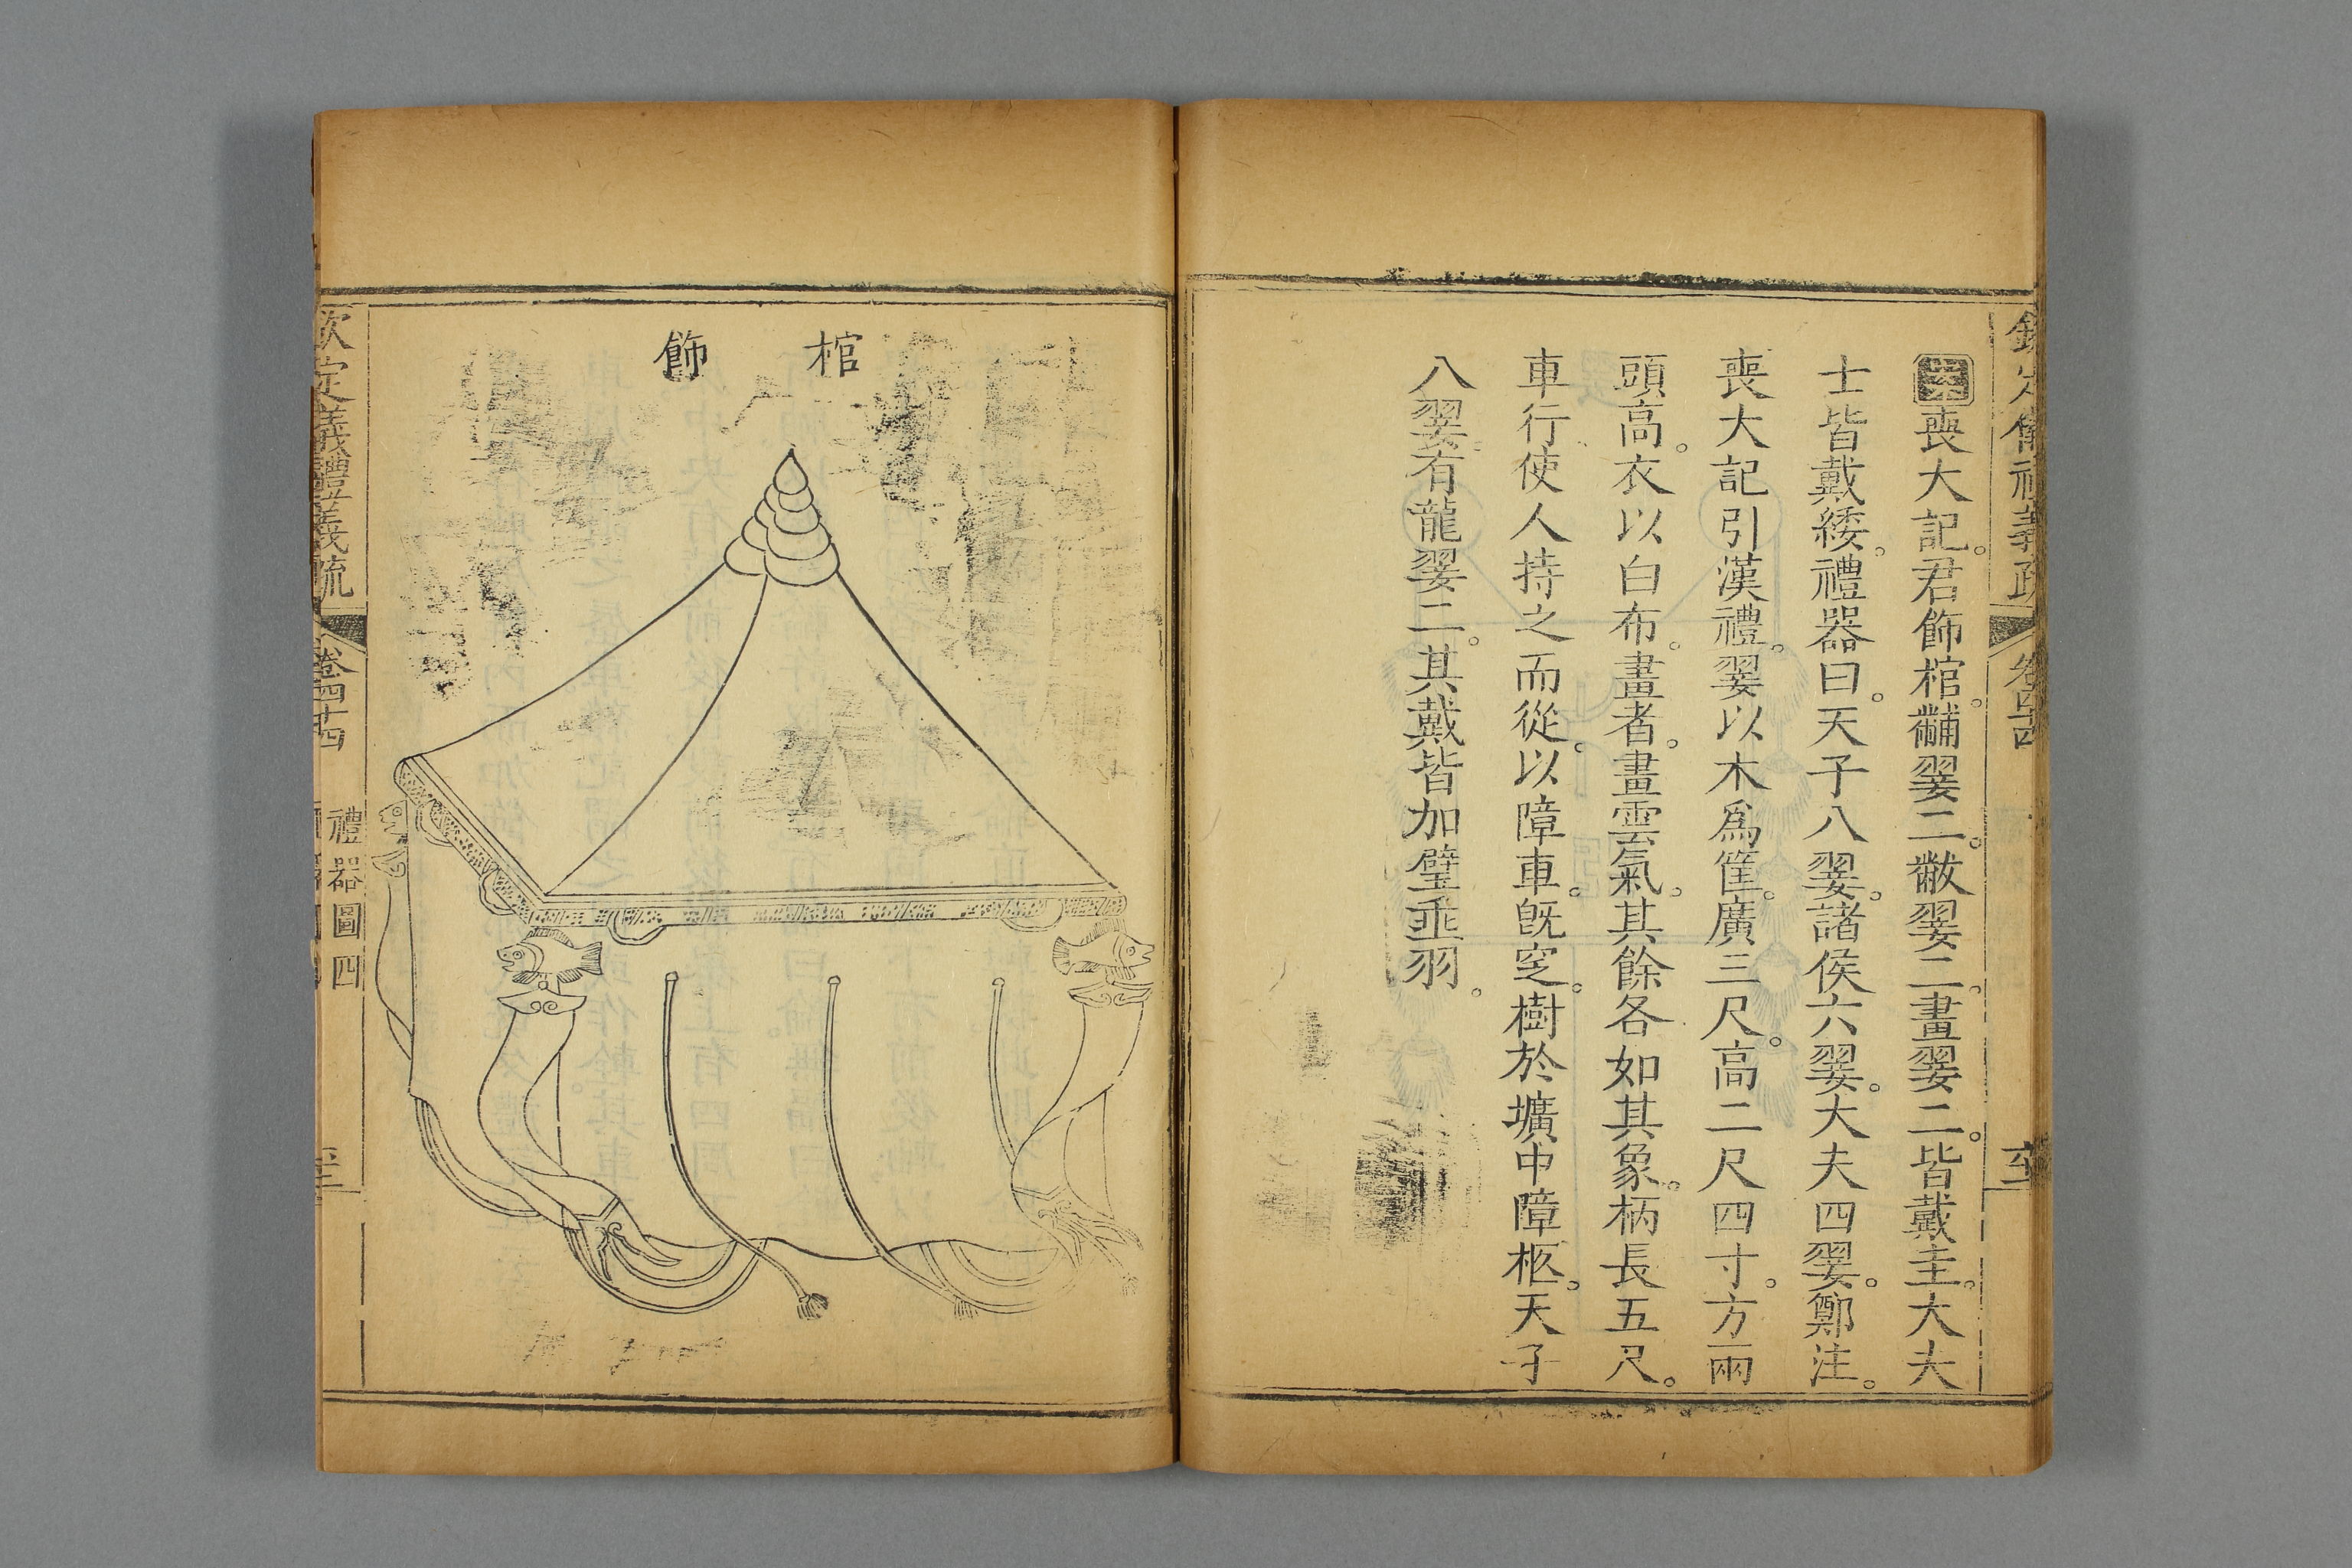 欽定儀禮義疏 卷四十四
案喪大記。君飾棺。黼翣二。黻翣二。畫翣二。皆戴圭。大夫
士皆戴綏。禮器曰。天子八翣。諸侯六翣。大夫四翣。鄭注。
喪大記引漢禮。翣以木爲筐。廣三尺。高二尺四寸。方兩
頭高。衣以白布。畫者。畫雲氣。其餘各如其象。柄長五尺。
車行使人持之而從。以障車。旣窆。樹於壙中障柩。天子
八翣。有龍翣二。其戴皆加璧垂羽。
棺飾
欽定儀禮義疏 卷四十四 禮器圖四